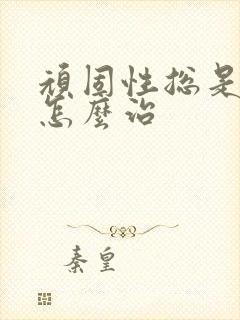 頑固性総是
怎麼治
秦皇